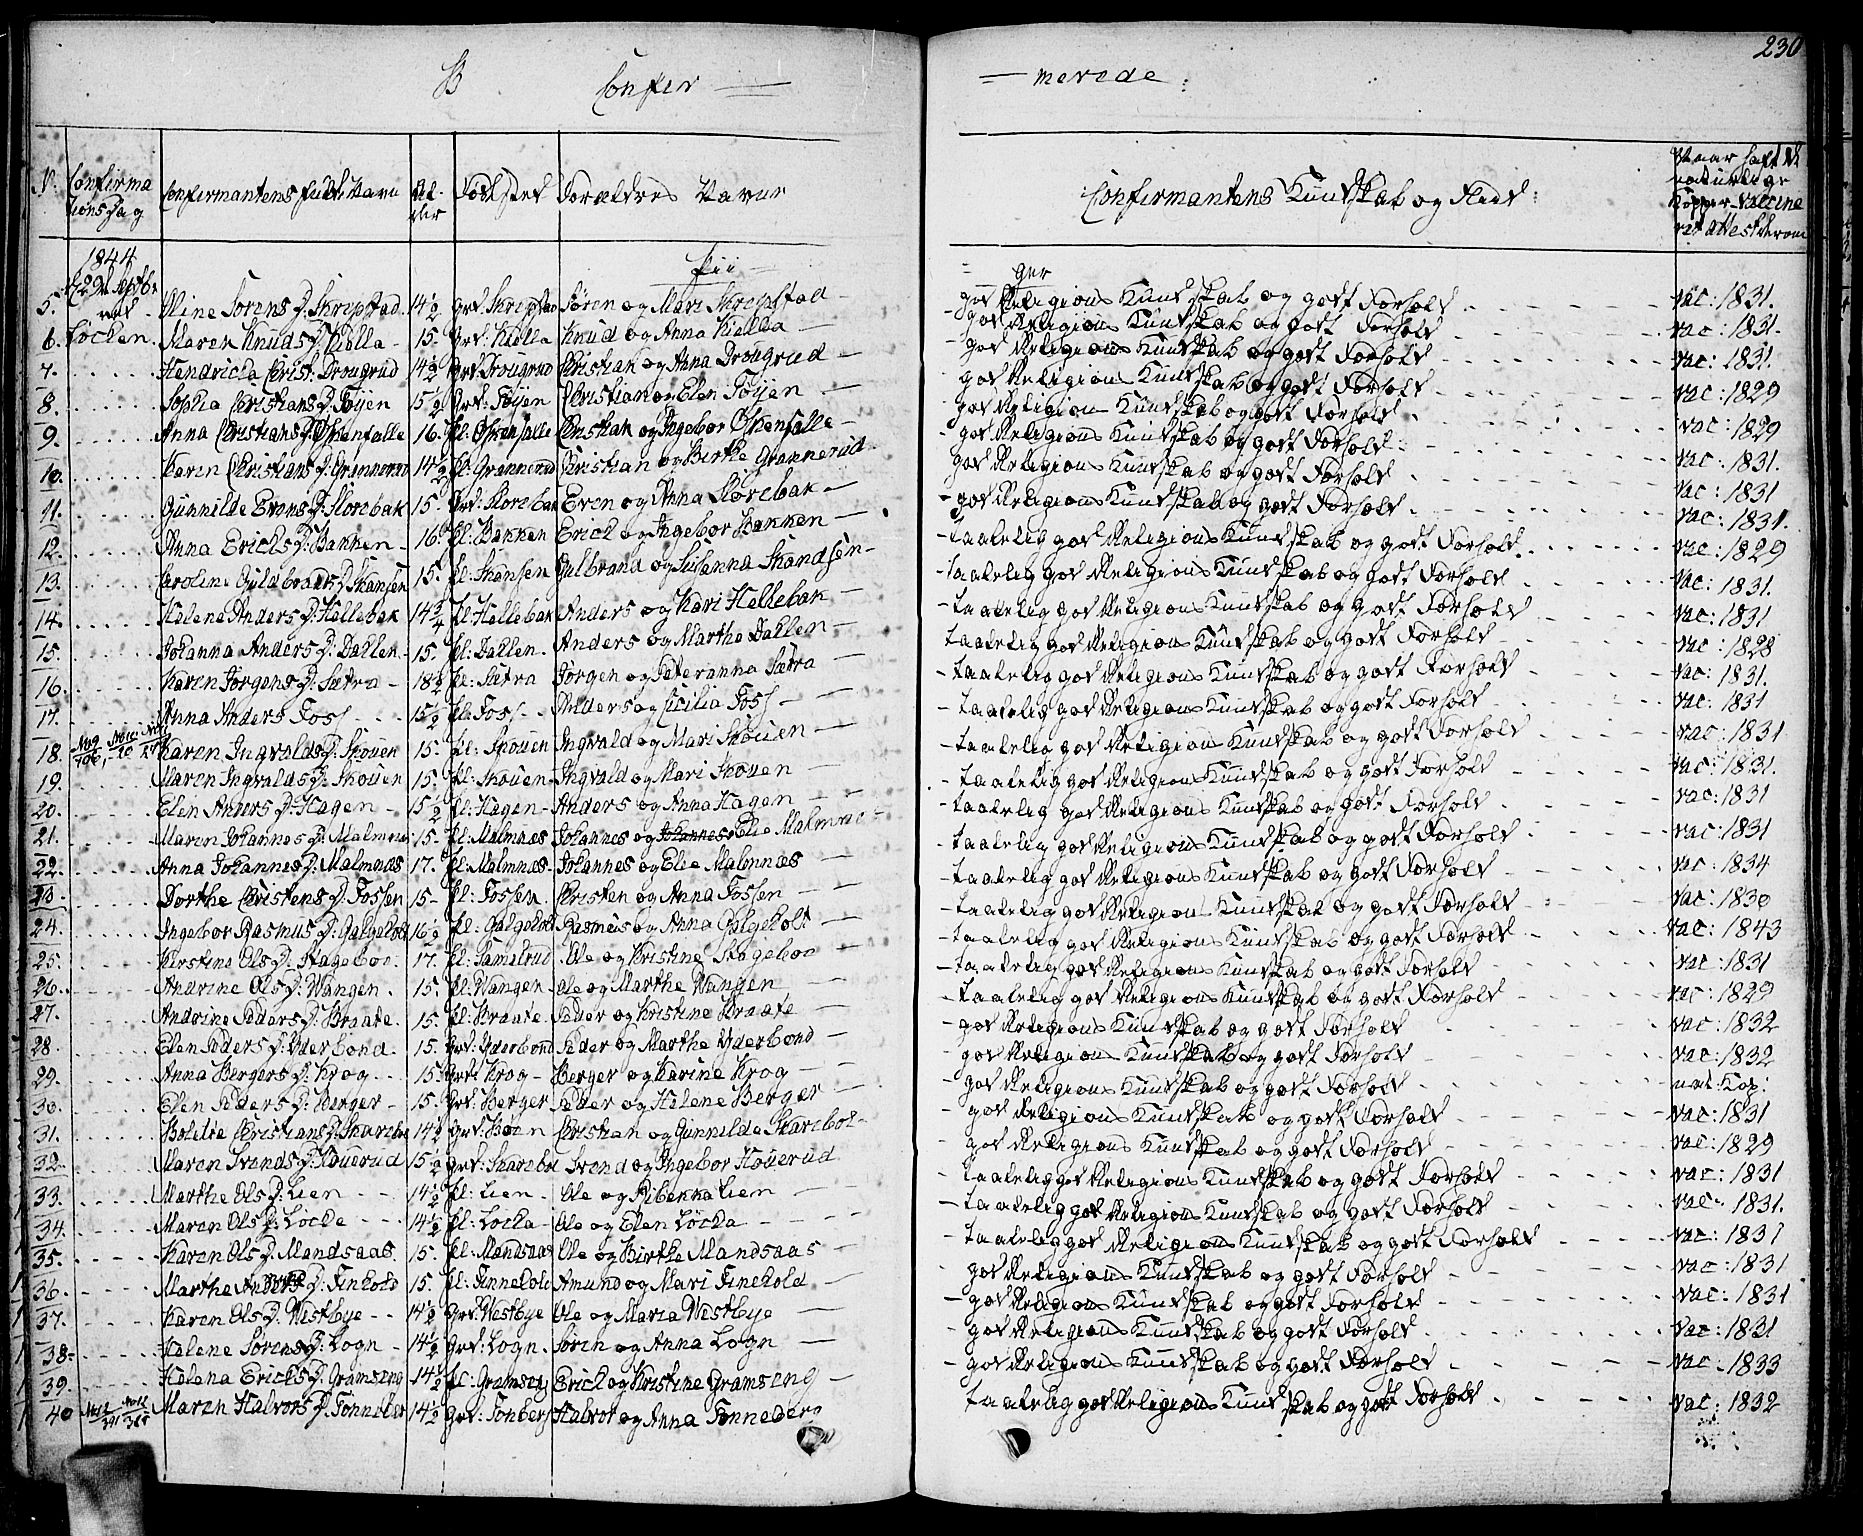 230
B Confir — — merede:
N. Confirmationsdag Confirmantens fulde Navn Alder Fødested Forældres Navne Confirmantens Kundskab og Flid: Naar haft de naturlige Kopper vaccineret attest derom
1844 Pii — ger
5. 29de Septbr ved Oline Sørens D. Skrepstad 14½ grd. Skrepstad Søren og Mari Skrepstad — god Religions Kundskab og godt Forhold vac: 1831.
6. Løcken Maren Knuds D. Kiølla 15 grd. Kiølla Knud og Anna Kiølla — god Religions Kundskab og godt Forhold vac: 1831.
7. Hendricka Christ. Drougrud 14½ grd. Drougrud Christian og Anna Drougrud — god Religions Kundskab og godt Forhold vac: 1831.
8. Sophia Christians D. Tøijen 15½ grd. Tøijen Christian og Elen Tøijen — god Religions Kundskab og godt Forhold vac: 1829
9. Anna Christians D. Østenfalle 16. pl. Østenfalle Christian og Ingebor Østenfalle — god Religions Kundskab og godt Forhold vac: 1829
10. Karen Christians D. Grønnerud 14½ pl. Grønnerud Christian og Birthe Grønnerud — god Religions Kundskab og godt Forhold vac: 1831.
11. Gunnilde Evens D. Slorebak 15. grd. Slorebak Even og Anna Slorebak — god Religions Kundskab og godt Forhold vac: 1831
12. Anna Erichs D. Bakken 16. pl. Bakken Erich og Ingebor Bakken — god Religions Kundskab og godt Forhold vac: 1831.
13. Caroline Guldbrands D. Skansen 15. pl. Skansen Gulbrand og Susanna Skandsen — taalelig god Religions Kundskab og godt Forhold vac: 1829
14. Helene Anders D. Hellebek 14¾ pl. Hellebek Anders og Kari Hellebak — taalelig god Religions Kundskab og godt Forhold vac: 1831.
15. Johanna Anders D. Dallen 15. pl. Dallen Anders og Marthe Dallen — taalelig god Religions Kundskab og godt Forhold vac: 1831
16. Karen Jørgens D. Sætra 18½ pl. Sætra Jørgen og Peteranna Sætra — taalelig god Religions Kundskab og godt Forhold vac: 1828
17. Anna Anders Foss 15½ pl. Foss Anders og Cicilia Foss — taalelig god Religions Kundskab og godt Forhold vac: 1831.
18. Karen Ingvalds D. Skouen 15. pl. Skouen Ingvald og Mari Skouen — taalelig god Religions Kundskab og godt Forhold vac: 1831
19. Maren Ingvalds D. Skouen 15. pl. Skouen Ingvald og Mari Skouen — taalelig god Religions Kundskab og godt Forhold vac: 1831
20. Elen Anders D. Hagen 15½ pl. Hagen Anders og Anna Hagen — taalelig god Religions Kundskab og godt Forhold vac: 1831.
21. Maren Johannes D. Malmnæs 15. pl. Malmnæs Johannes og Johannes Elie Malmnæ — taalelig god Religions Kundskab og godt Forhold vac: 1831
22. Anna Johannes D. Malmnæs 17. pl. Malmnæs Johannes og Elie Malmnæs — taalelig god Religions Kundskab og godt Forhold vac: 1831
23. Dorthe Christens D. Fossen 15 pl. Fossen Christen og Anna Fossen — taalelig god Religions Kundskab og godt Forhold vac: 1834
24. Ingebor Rasmus D. Galgeholt 16½ pl. Galgeholt Rasmus og Anna Galgeholt — taalelig god Religions Kundskab og godt Forhold vac: 1830
25. Kirstine Ols D. Stageboe 17. pl. Samelrud Ole og Kristine Stageboe — taalelig god Religions Kundskab og godt Forhold vac: 1843
26. Andrine Ols D. Wangen 15. pl. Wangen Ole og Marthe Wangen — taalelig god Religions Kundskab og godt Forhold vac: 1831
27. Andrine Peders D. Braate 15. pl. Braate Peder og Kristine Braate — taalelig god Religions Kundskab og godt Forhold vac: 1829
28. Elen Peders D. Yderbond 15. grd. Yderbond Peder og Marthe Yderbond — god Religions Kundskab og godt Forhold vac: 1832
29. Anna Bergers D. Krog 15. grd. Krog Berger og Karine Krog — god Religions Kundskab og godt Forhold vac: 1832
30. Elen Peders D. Berger 15. grd. Berger Peder og Helene Berger — god Religions Kundskab og godt Forhold nat: Kop:
31. Bolette Christians D. Skarebo 14½ grd. Bøen Christian og Gunnilde Skarebol — god Religions Kundskab og godt Forhold vac: 1831
32. Maren Svends D. Houerud 15½ grd. Skarebol Svend og Ingebor Houerud — god Religions Kundskab og godt Forhold vac: 1829
33. Marthe Ols D. Lien 14½ pl. Lien Ole og Ribekka Liem — taalelig god Religions Kundskab og godt Forhold vac: 1831
34. Maren Ols D. Løcke 14½ pl. Løcka Ole og Elen Løcka — taalelig god Religions Kundskab og godt Forhold vac: 1831.
35. Karen Ols D. Mandsaas 15. pl. Mandsaas Ole og Birthe Mandsaas — taalelig god Religions Kundskab og godt Forhold vac: 1831
36. Marthe D. Finhold 15. pl. Finnehold Amund og Mari Finehold — god Religions Kundskab og godt Forhold vac: 1831
37. Karen Ols D. Westbye 14½ grd. Westbye Ole og Maria Westbye — god Religions Kundskab og godt Forhold vac: 1831
38. Helene Sørens D. Logn 14½ grd. Logn Søren og Anna Logn — god Religions Kundskab og godt Forhold vac: 1831
39. Helena Erichs D. Gramseng 14½ pl. Gramseng Erich og Kristine Gramseng — god Religions Kundskab og godt Forhold vac. 1833
40 Maren Halvors D. Tønneber 14½ grd. Tonberg Halvor og Anna Tønneberg — taalelig god Religions Kundskab og godt Forhold vac: 1832